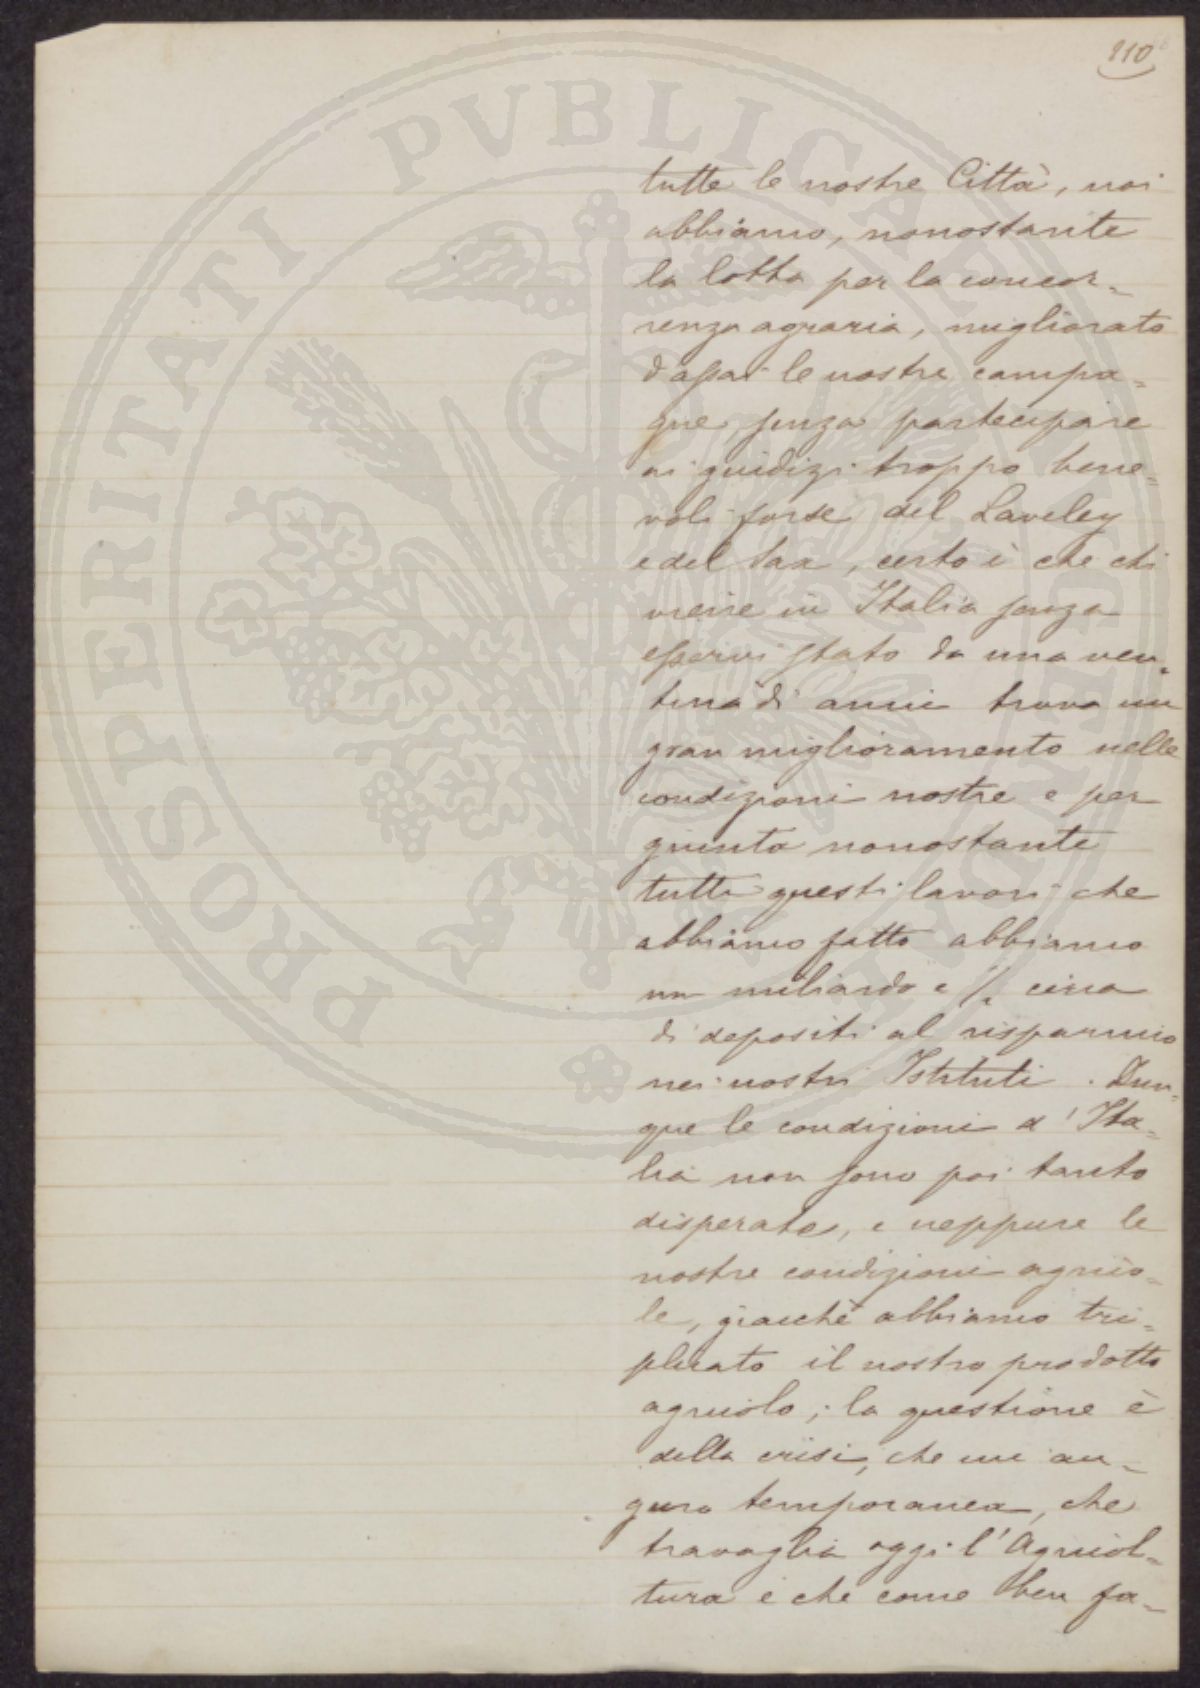 110
PROSPERITATI PVBLICAE AVGENDAE
tutte le nostre Città, noi
abbiamo, nonostante
la lotta per la concor=
renza agraria, migliorato
d'assai le nostre campa=
gne, senza partecipare
ai giudizi troppo bene=
voli forse del Laveley
e del Sax, certo è che chi
viene in Italia senza
esservi stato da una ven=
tina di anni trova un
gran miglioramento nelle
condizioni nostre e per
giunta nonostante
tutti questi lavori che
abbiamo fatto abbiamo
un miliardo e 1/2 circa
di depositi al risparmio
nei nostri Istituti. Dun=
que le condizioni d'Ita=
lia non sono poi tanto
disperate, e neppure le
nostre condizioni agrico=
le, giacchè abbiamo tri=
plicato il nostro prodotto
agricolo; la questione è
della crisi, che mi au=
guro temporanea, che
travaglia oggi l'Agricol=
tura e che come ben sa=